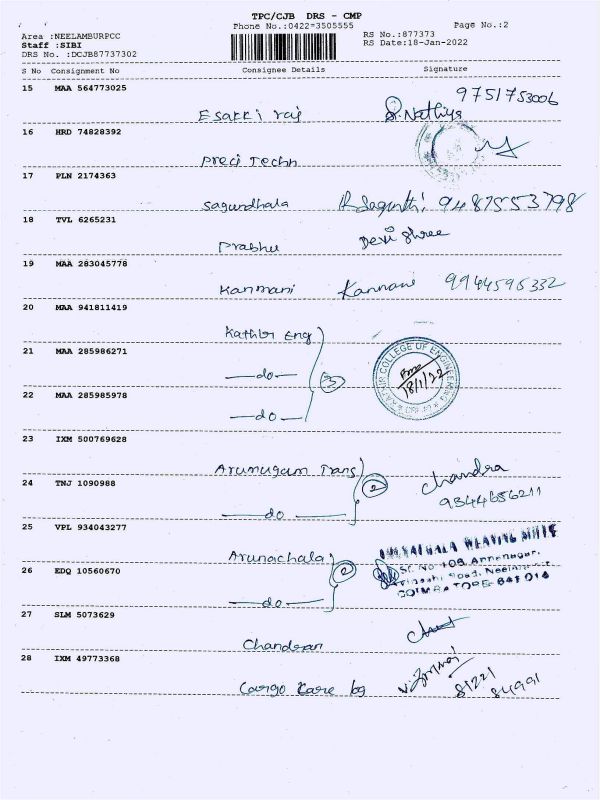 TPC/CJB DRS - CMP
Phone No.:0422=3505555
Page No.:2
Area :NEELAMBURPCC
Staff :SIBI
DRS No. :DCJB87737302
RS No.:877373
RS Date:18-Jan-2022
S No Consignment No Consignee Details Signature
15 MAA 564773025
Esakki raj S. Nathiya 9751753006
16 HRD 74828392
Preci Techn
17 PLN 2174363
Sagundhala 9487553798
18 TVL 6265231
Prabhu Devi Shree
19 MAA 283045778
Kanmani Kannani 9944595332
20 MAA 941811419
Kathir Eng
21 MAA 285986271
—do— 3
COLLEGE OF ENGINEERING
18/1/22
22 MAA 285985978
—do—
23 IXM 500769628
Arumugam Trans Chandra
24 TNJ 1090988
2 9344656211
—do—
25 VPL 934043277
Arunachala WEAVING MILLS
26 EDQ 10560670
2 Sf. No 108, Annanagar,
Road,
COIMBATORE-641 014
—do—
27 SLM 5073629
Chandran
28 IXM 49773368
Cargo Care bg 81221
84991